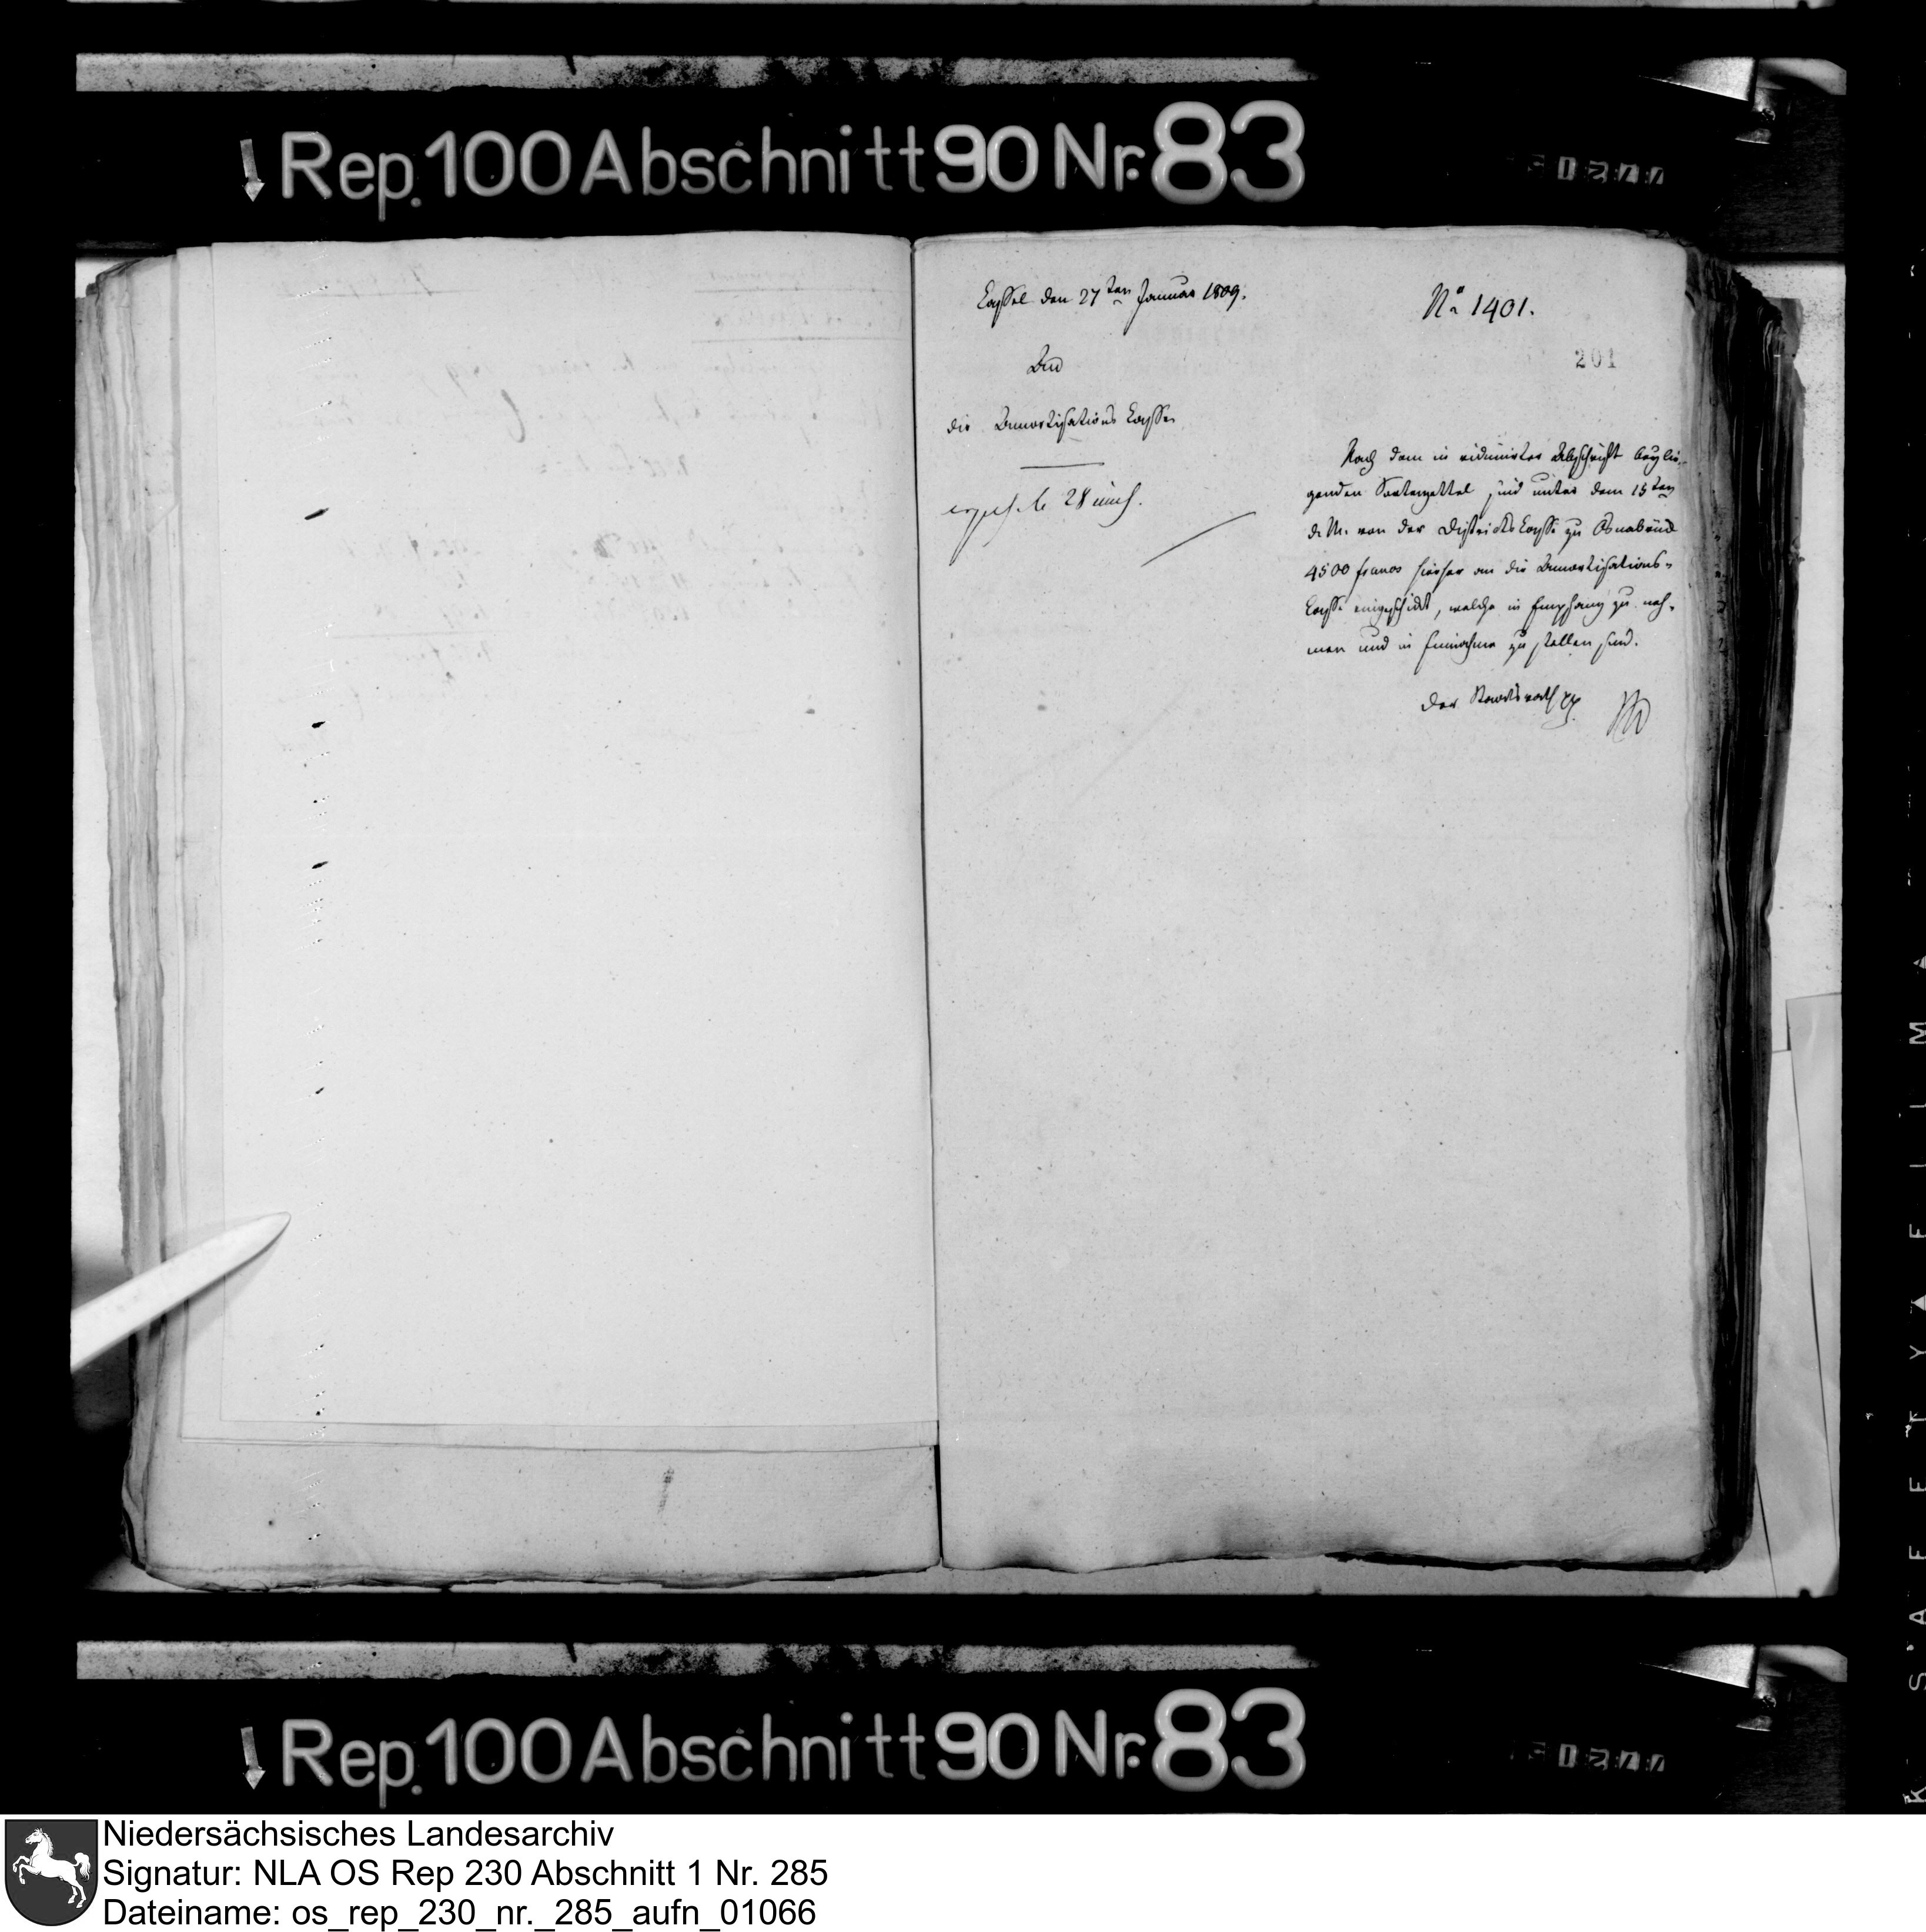 Rep. 100 Abschnitt 90 Nr. 83
Cassel den 27ten Januar 1809.
No 1401.
201
An
die Amortisations Casse
Nach dem in vidimirter Abschrift beylie-
genden Sortenzettel sind unter dem 15ten
d. M. von der Districts Casse zu Osnabrück
4500 francs hierher an die Amortisations-
Casse eingeschickt, welche in Empfang zu neh-
men und in Einnahme zu stellen sind.
28
Der Staatsrath
Rep. 100 Abschnitt 90 Nr. 83
Niedersächsisches Landesarchiv
Signatur: NLA OS Rep 230 Abschnitt 1 Nr. 285
Dateiname: os_rep_230_nr._285_aufn_01066